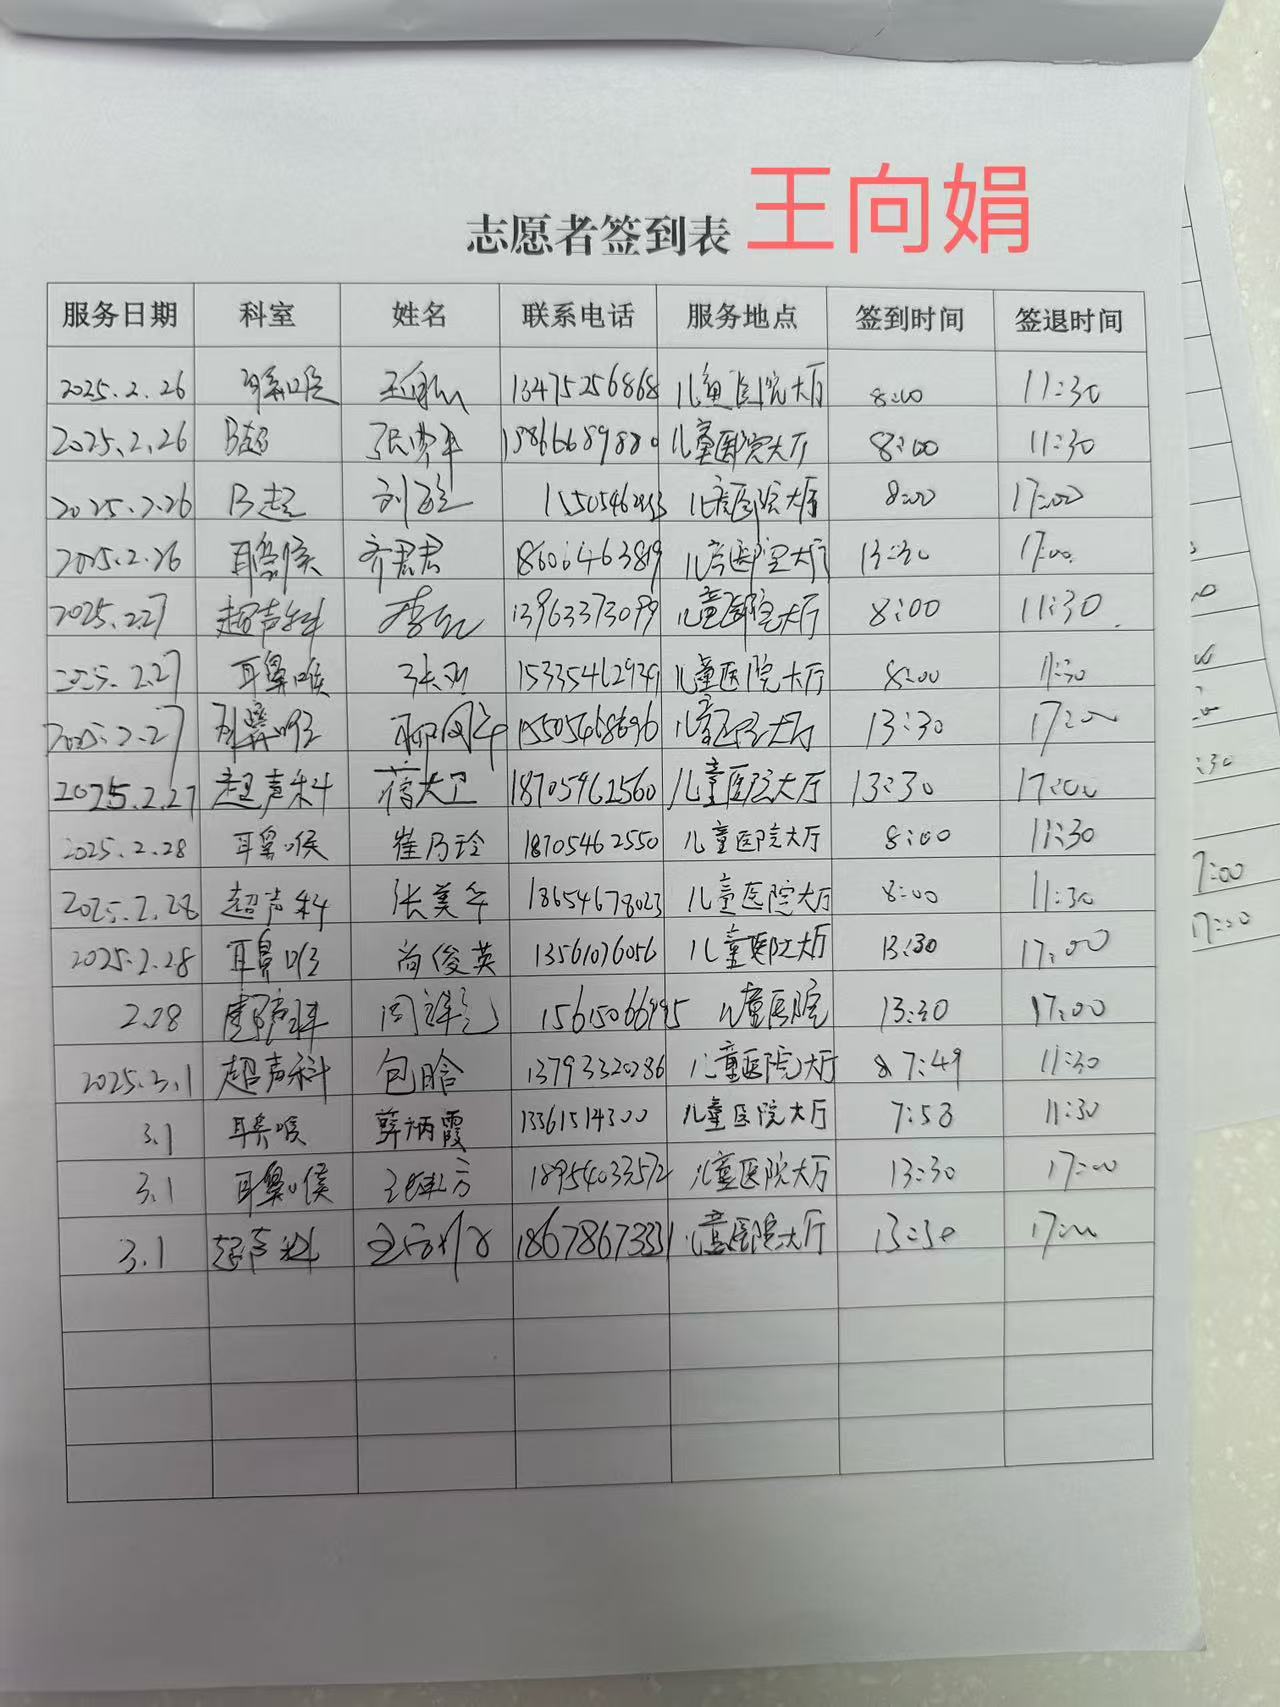 王向娟
志愿者签到表
服务日期 科室 姓名 联系电话 服务地点 签到时间 签退时间
2025.2.26 耳鼻喉 13475256868 儿童医院大厅 8:00 11:30
2025.2.26 B超 13866689880 儿童医院大厅 8:00 11:30
2025.2.26 B超 儿童医院大厅 8:00 17:00
2025.2.26 耳鼻喉 齐君君 18606463819 儿童医院大厅 13:30 17:00
2025.2.27 超声科 13963373099 儿童医院大厅 8:00 11:30
2025.2.27 耳鼻喉 15335462939 儿童医院大厅 8:00 11:30
2025.2.27 耳鼻喉 15505468696 儿童医院大厅 13:30 17:00
2025.2.27 超声科 蒋大卫 18705462560 儿童医院大厅 13:30 17:00
2025.2.28 耳鼻喉 崔乃玲 18705462550 儿童医院大厅 8:00 11:30
2025.2.28 超声科 张美华 18654678023 儿童医院大厅 8:00 11:30
2025.2.28 耳鼻喉 尚俊英 13561076056 儿童医院大厅 13:30 17:00
2.28 超声科 15615066995 儿童医院 13:30 17:00
2025.3.1 超声科 包晗 13793320286 儿童医院大厅 7:49 11:30
3.1 耳鼻喉 薛炳霞 13361514300 儿童医院大厅 7:53 11:30
3.1 耳鼻喉 18954033572 儿童医院大厅 13:30 17:00
3.1 超声科 18678673331 儿童医院大厅 13:30 17:00